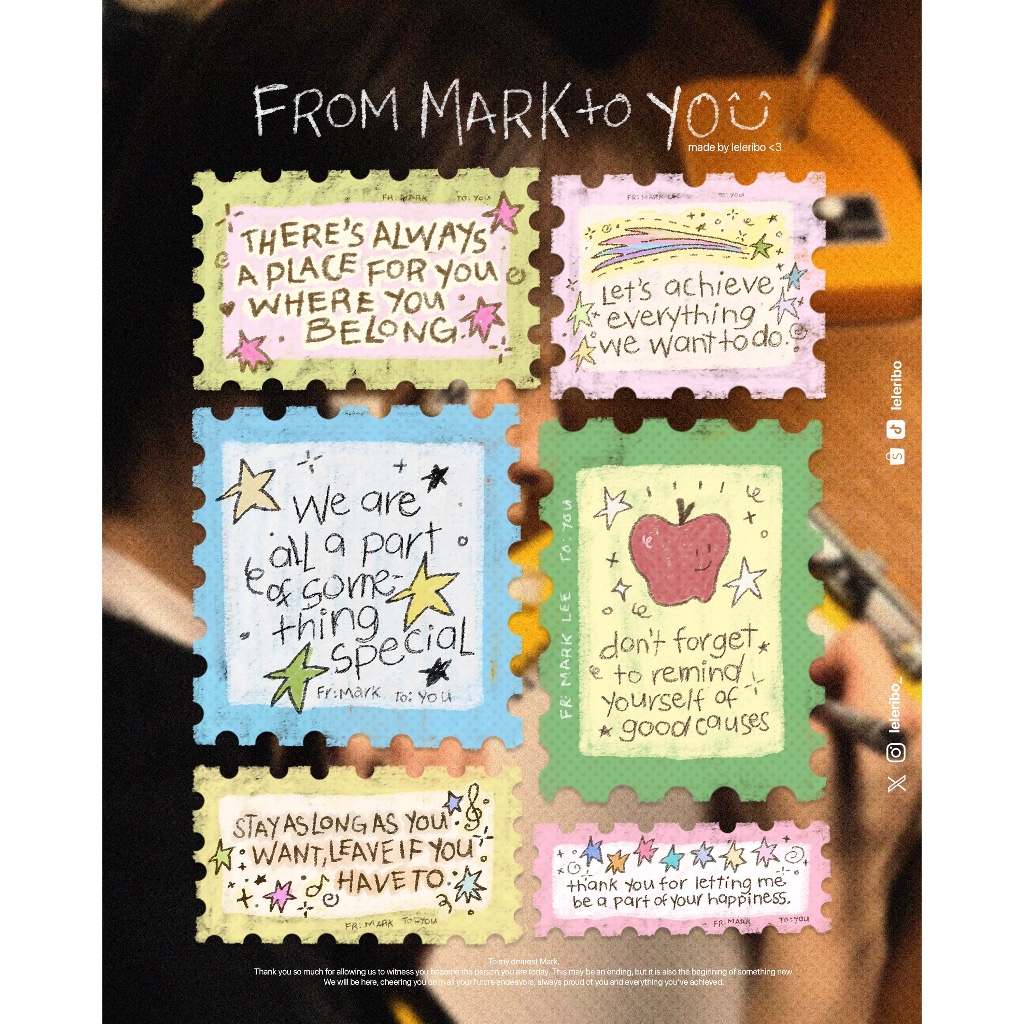 FROM MARK to YOU
made by leleribo <3
FR: MARK TO: YOU
THERE'S ALWAYS
A PLACE FOR YOU
WHERE YOU
BELONG.
FR: MARK LEE TO: YOU
Let's achieve
everything
we want to do.
We are
all a part
of some-
thing
special
FR: Mark To: YOU
FR: MARK LEE TO: YOU
don't forget
to remind
yourself of
good causes
STAY AS LONG AS YOU
WANT, LEAVE IF YOU
HAVE TO
FR: MARK TO: YOU
thank you for letting me
be a part of your happiness.
FR: MARK TO: YOU
leleribo
leleribo_
To my dearest Mark,
Thank you so much for allowing us to witness you become the person you are today. This may be an ending, but it is also the beginning of something new.
We will be here, cheering you on in all your future endeavors, always proud of you and everything you've achieved.